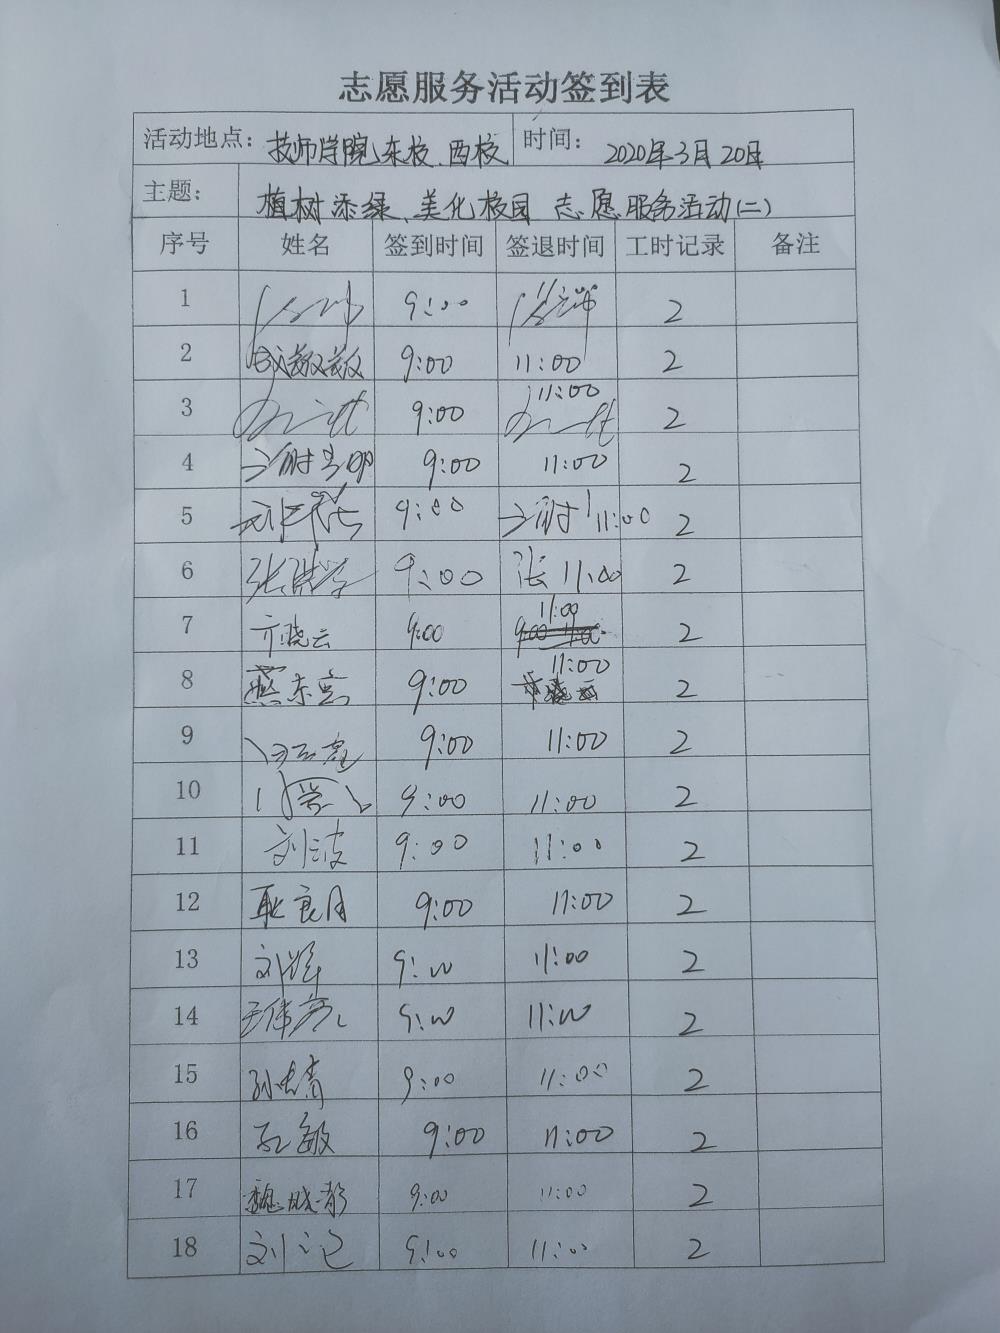 志愿服务活动签到表
活动地点: 技师学院东校、西校 时间: 2020年3月20日
主题: 植树添绿、美化校园 志愿服务活动(二)
序号 姓名 签到时间 签退时间 工时记录 备注
1 9:00 2
2 9:00 11:00 2
3 9:00 11:00 2
4 9:00 11:00 2
5 9:00 11:00 2
6 张 9:00 张 11:00 2
7 亓晓云 9:00 11:00 2
8 燕东 9:00 11:00 2
9 9:00 11:00 2
10 9:00 11:00 2
11 刘波 9:00 11:00 2
12 耿良月 9:00 11:00 2
13 刘 9:00 11:00 2
14 9:00 11:00 2
15 孙 9:00 11:00 2
16 孔敏 9:00 11:00 2
17 魏晓 9:00 11:00 2
18 刘 9:00 11:00 2